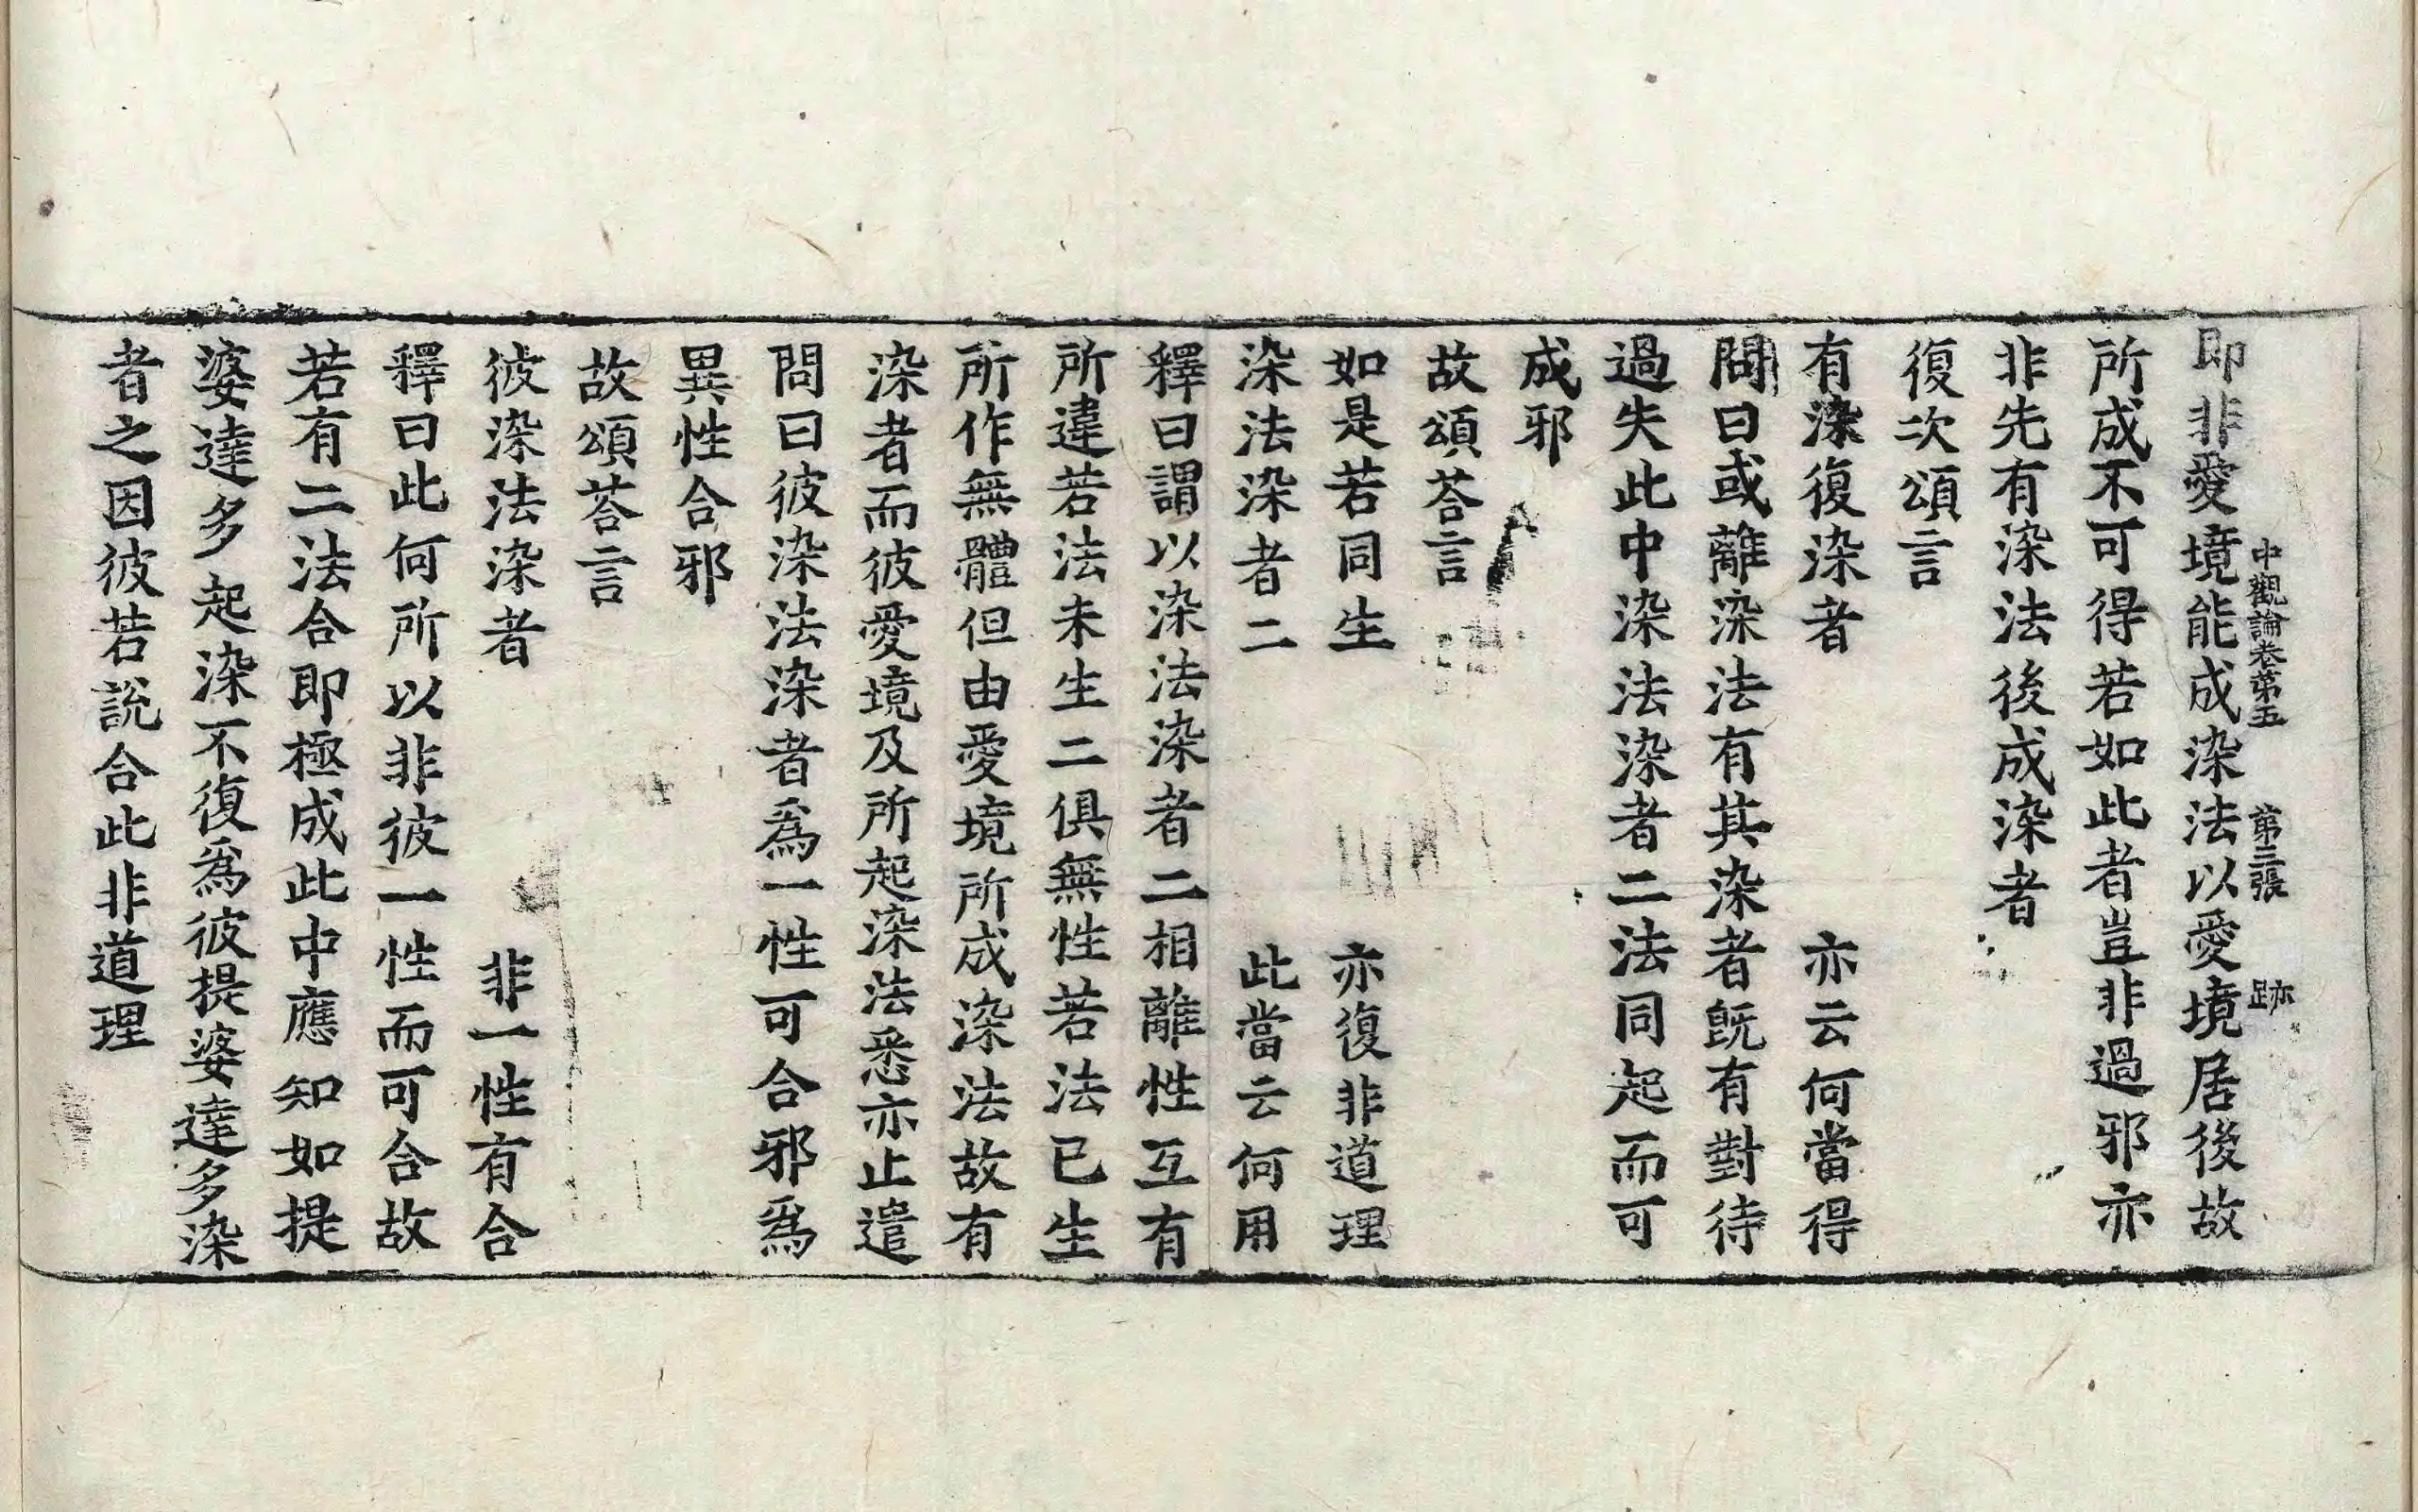 中觀論卷第五　第三張　跡
即非愛境能成染法以愛境居後故
所成不可得若如此者豈非過邪亦
非先有染法後成染者
復次頌言
有染復染者　亦云何當得
問曰或離染法有其染者旣有對待
過失此中染法染者二法同起而可
成邪
故頌荅言
如是若同生　亦復非道理
染法染者二　此當云何用
釋曰謂以染法染者二相離性互有
所違若法未生二俱無性若法已生
所作無體但由愛境所成染法故有
染者而彼愛境及所起染法悉亦止遣
問曰彼染法染者爲一性可合邪爲
異性合邪
故頌荅言
彼染法染者　非一性有合
釋曰此何所以非彼一性而可合故
若有二法合即極成此中應知如提
婆達多起染不復爲彼提婆達多染
者之因彼若說合此非道理